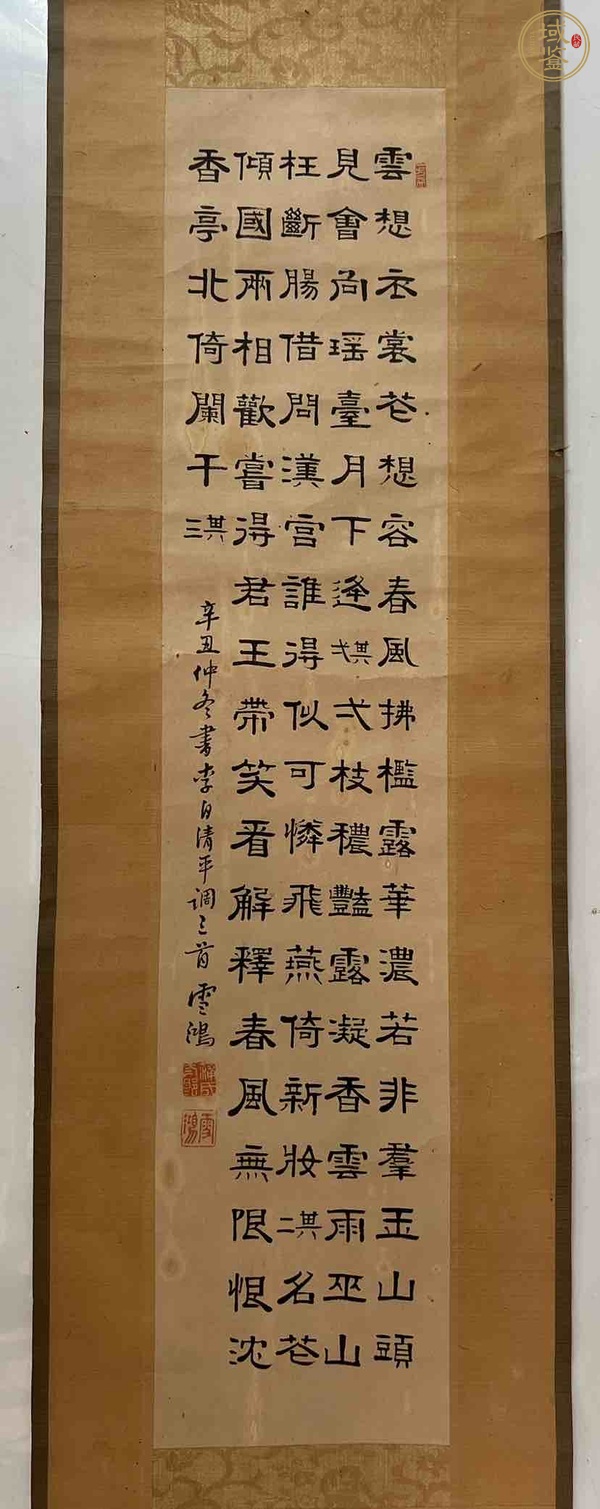 雲想衣裳花想容春風拂檻露華濃若非羣玉山頭
見會向瑶臺月下逢其弌弌枝穠豔露凝香雲雨巫山
枉斷腸借問漢宮誰得似可憐飛燕倚新妝其二名花
傾國兩相歡嘗得君王帶笑看解釋春風無限恨沈
香亭北倚闌干其三
辛丑仲冬書李白清平调三首雪鴻
雪鴻
域鉴